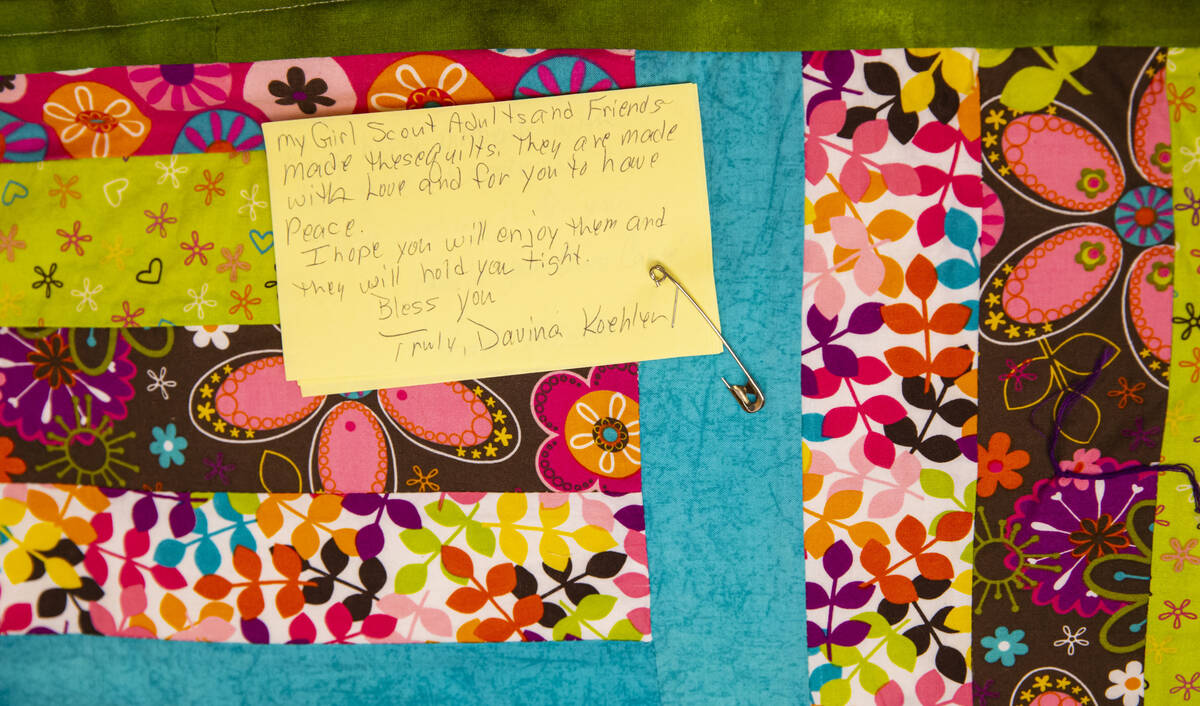 my Girl Scout Adults and Friends
made these quilts. They are made
with Love and for you to have
Peace.
I hope you will enjoy them and
they will hold you tight.
Bless you
Truly, Davina Koehlen